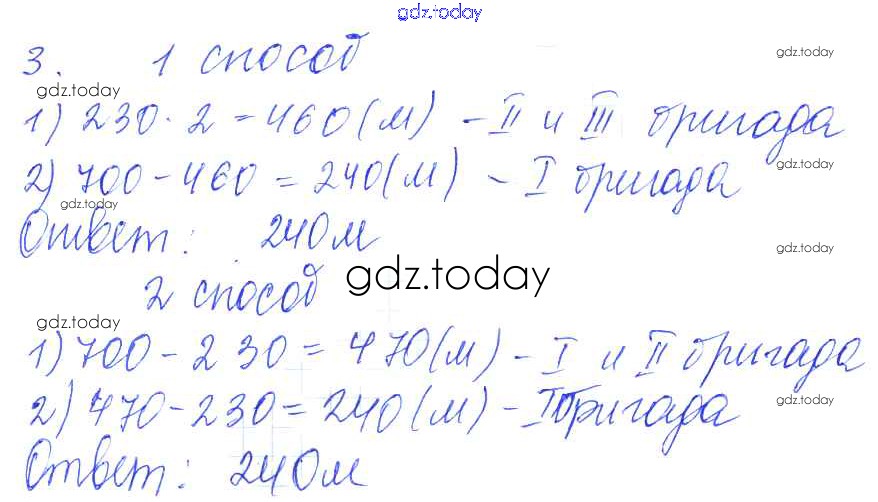 gdz.today
3. 1 способ
gdz.today
gdz.today
1) 230 · 2 = 460 (м) - II и III бригада
2) 700 - 460 = 240 (м) - I бригада
gdz.today
gdz.today
Ответ: 240 м
gdz.today
2 способ
gdz.today
gdz.today
1) 700 - 230 = 470 (м) - I и II бригада
2) 470 - 230 = 240 (м) - I бригада
gdz.today
Ответ: 240 м